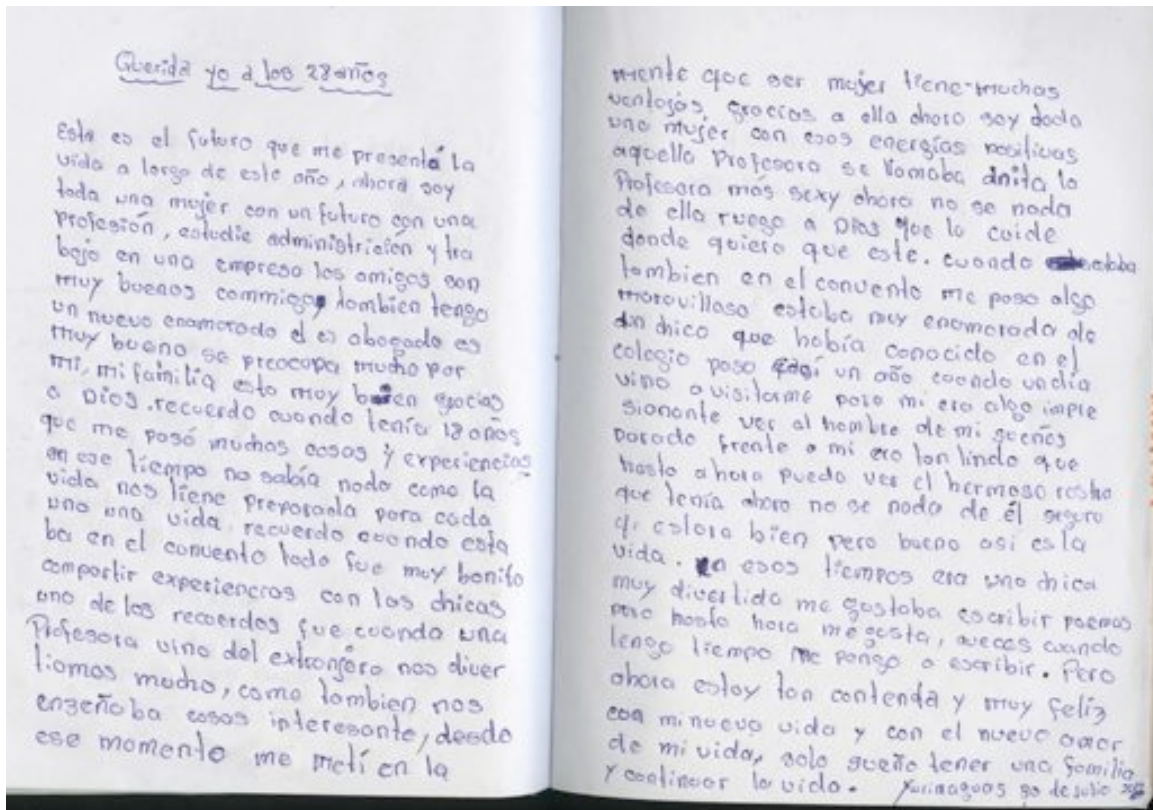 Querida yo a los 28 años
Este es el futuro que me presentá la
vida a largo de este año, ahora soy
toda una mujer con un futuro con una
profesión, estudie administrición y tra
bajo en una empresa los amigos son
muy buenos commigo, tombien tengo
un nuevo enamorado el es abogado es
muy bueno se preocupa mucho por
mi, mi familia esta muy bien gracias
a Dios. recuerdo cuando tenía 18 años
que me pasó muchas cosas y experiencias
en ese tiempo no sabía nada como la
vida nos tiene preparada para cada
uno una vida, recuerdo cuando esta
ba en el convento todo fue muy bonito
compartir experiencias con las chicas
uno de los recuerdos fue cuando una
Profesora vino del extranjéro nos diver
tiamos mucho, como tambien nos
enzeñaba cosas interesante, desde
ese momento me metí en la
mente que ser mujer tiene muchas
ventajas, gracias a ella ahora soy dada
una mujer con esas energías positivas
aquella Profesora se llamaba Anita la
Profesora más sexy ahora no se nada
de ella ruego a Dios que la cuide
donde quiera que este. cuando estaba
tambien en el convento me paso algo
maravilloso estaba muy enamorada de
un chico que había conocido en el
colegio paso casi un año cuando un día
vino a visitarme para mi era algo impre
sionante ver al hombre de mi sueños
parado frente a mi era tan lindo que
hasta ahora puedo ver el hermoso rostro
que tenía ahora no se nada de él seguro
q. estara bien pero bueno asi es la
vida. En esos tiempos era una chica
muy divertida me gustaba escribir poemas
pero hasta hora me gusta, aveces cuando
tengo tiempo me pongo a escribir. Pero
ahora estoy tan contenda y muy feliz
con mi nueva vida y con el nuevo amor
de mi vida, solo sueño tener una familia
y continuar la vida. Yurimaguas 30 de julio